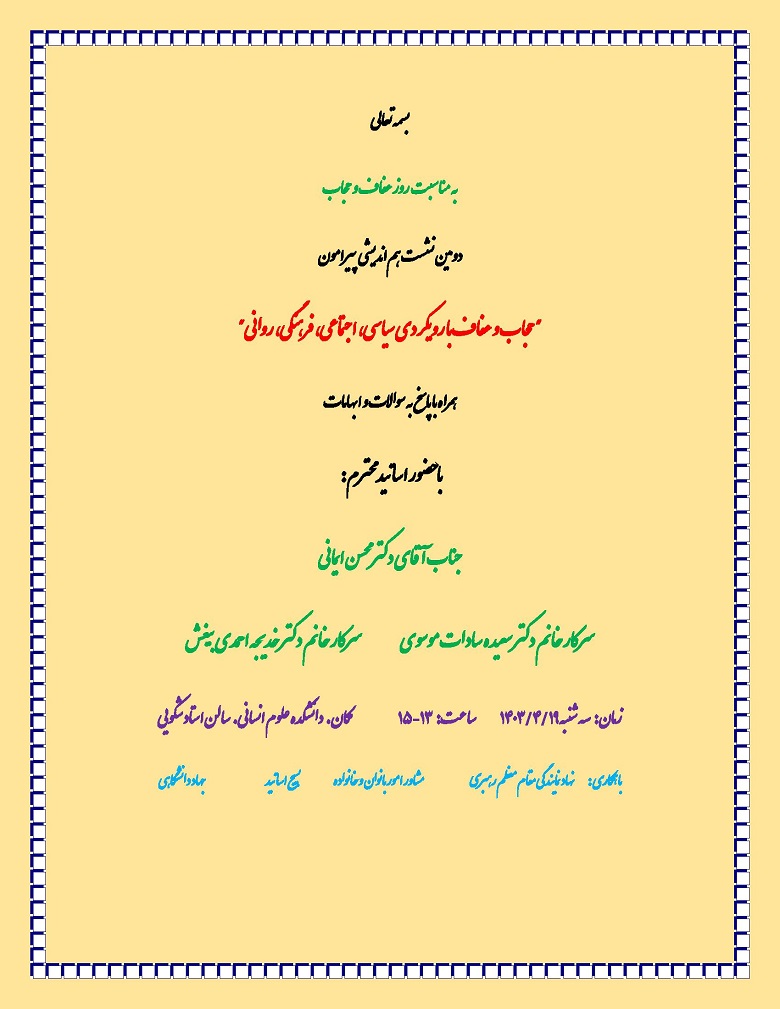 بسمه تعالی
به مناسبت روز عفاف و حجاب
دومین نشست هم اندیشی پیرامون
"حجاب و عفاف با رویکردی سیاسی، اجتماعی، فرهنگی، روانی"
همراه با پاسخ به سوالات و ابهامات
با حضور اساتید محترم:
جناب آقای دکتر محسن ایمانی
سرکار خانم دکتر سعیده سادات موسوی سرکار خانم دکتر خدیجه احمدی بیغش
زمان: سه شنبه ۱۴۰۳/۴/۱۹ ساعت: ۱۳-۱۵ مکان. دانشکده علوم انسانی. سالن استاد شکویی
با همکاری: نهاد نمایندگی مقام معظم رهبری مشاور امور بانوان و خانواده بسیج اساتید جهاد دانشگاهی